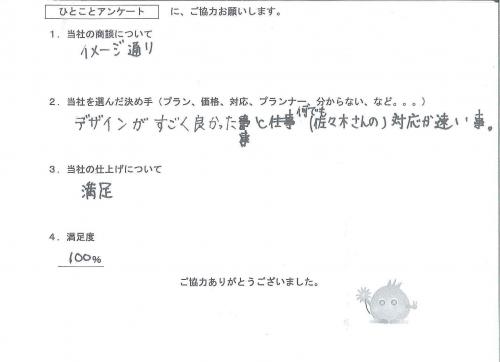 ひとことアンケート に、ご協力お願いします。
1．当社の商談について
イメージ通り
2．当社を選んだ決め手（プラン、価格、対応、プランナー、分からない、など。。。）
何でも
デザインがすごく良かった事と仕事(佐々木さんの)対応が速い事。
3．当社の仕上げについて
満足
4．満足度
100%
ご協力ありがとうございました。